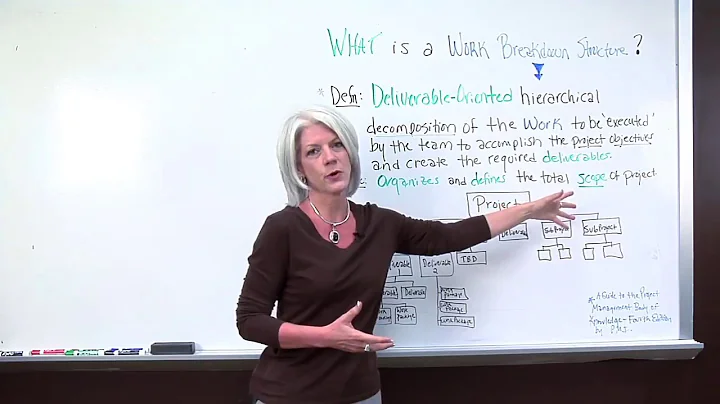 WHAT is a WORK Breakdown Structure?
* Defn: Deliverable-Oriented hierarchical
decomposition of the Work to be 'executed'
by the team to accomplish the project objectives
and create the required deliverables.
: Organizes and defines the total scope of project
Project
Deliverable SubProject SubProject
Deliverable 2 TBD
1
Deliverable
Work Package
Work Package
* A Guide to the Project
Management Body of
Knowledge - Fourth Edition
by P.M.I.